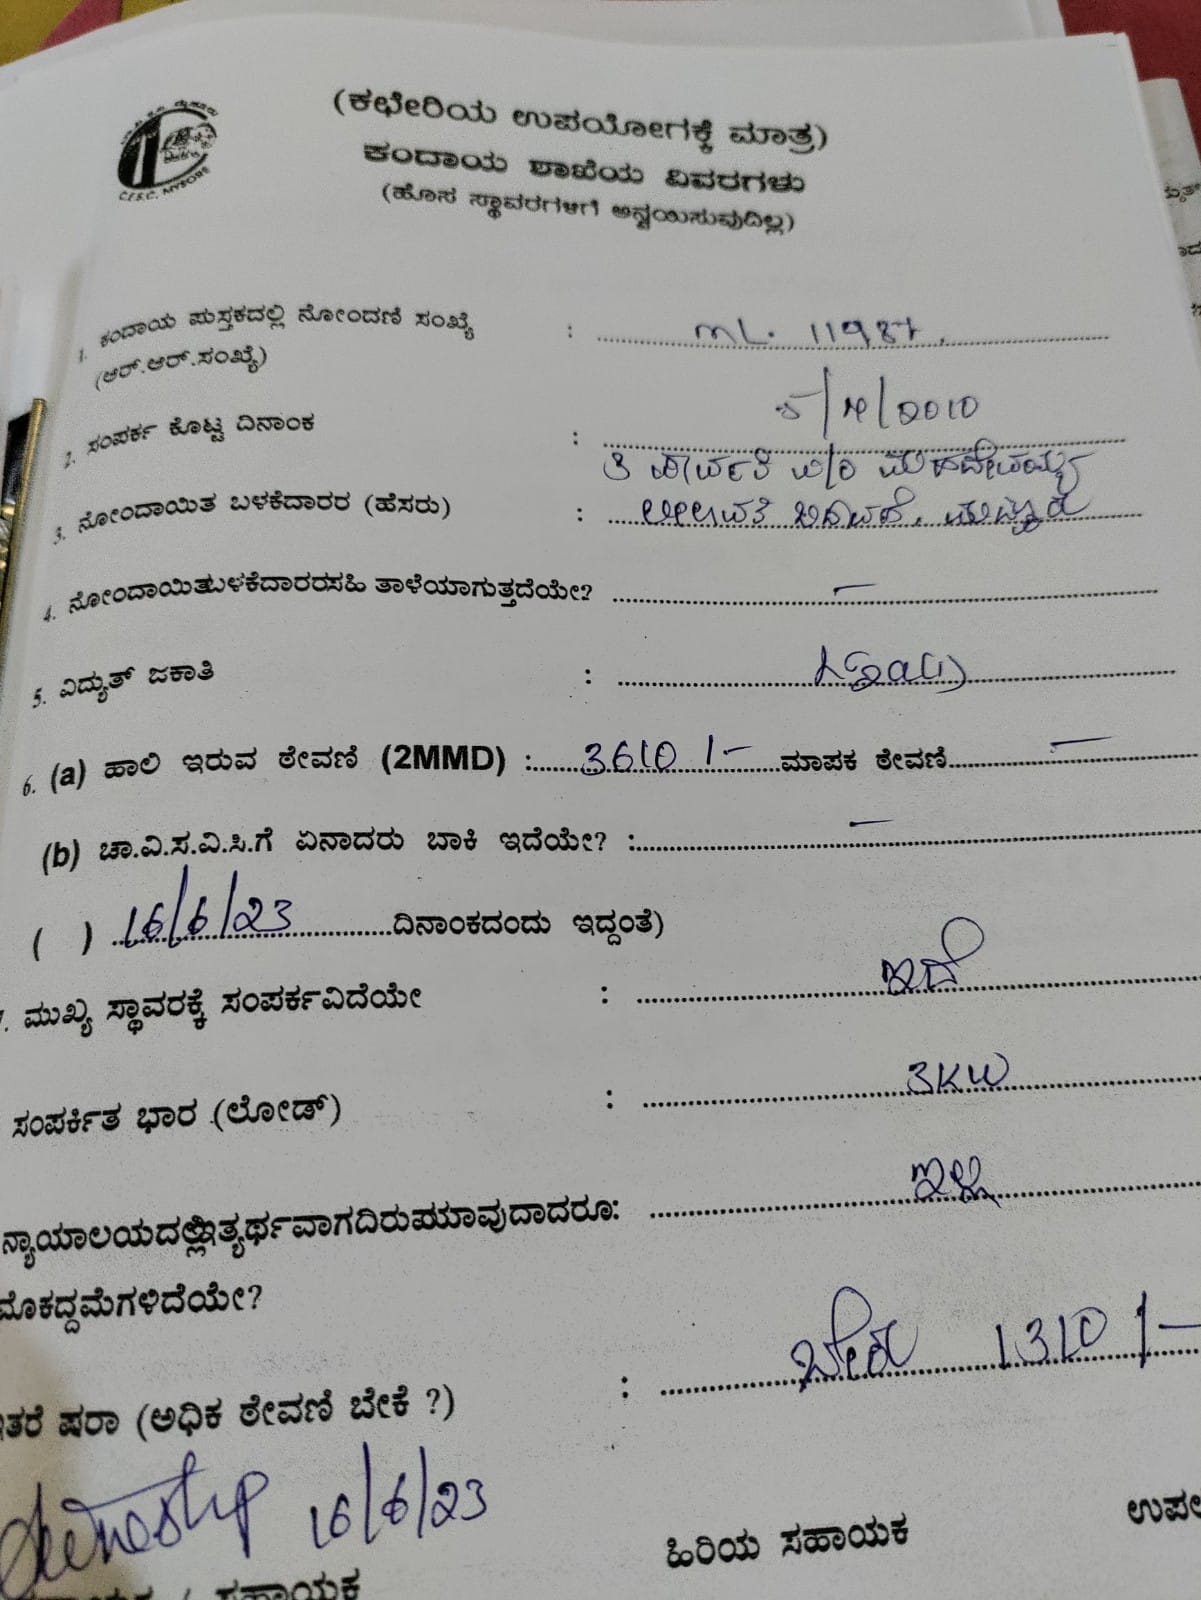 C.E.S.C. MYSORE
(ಕಛೇರಿಯ ಉಪಯೋಗಕ್ಕೆ ಮಾತ್ರ)
ಕಂದಾಯ ಶಾಖೆಯ ವಿವರಗಳು
(ಹೊಸ ಸ್ಥಾವರಗಳಿಗೆ ಅನ್ವಯಿಸುವುದಿಲ್ಲ)
1. ಕಂದಾಯ ಪುಸ್ತಕದಲ್ಲಿ ನೋಂದಣಿ ಸಂಖ್ಯೆ : ML. 11987
(ಆರ್.ಆರ್.ಸಂಖ್ಯೆ)
2. ಸಂಪರ್ಕ ಕೊಟ್ಟ ದಿನಾಂಕ : 2010
3. ನೋಂದಾಯಿತ ಬಳಕೆದಾರರ (ಹೆಸರು) :
4. ನೋಂದಾಯಿತಬಳಕೆದಾರರಸಹಿ ತಾಳೆಯಾಗುತ್ತದೆಯೇ? –
5. ವಿದ್ಯುತ್ ಜಕಾತಿ :
6. (a) ಹಾಲಿ ಇರುವ ಠೇವಣಿ (2MMD) : 3610/- ಮಾಪಕ ಠೇವಣಿ –
(b) ಚಾ.ವಿ.ಸ.ವಿ.ಸಿ.ಗೆ ಏನಾದರು ಬಾಕಿ ಇದೆಯೇ? : –
( ) 16/6/23 ದಿನಾಂಕದಂದು ಇದ್ದಂತೆ)
7. ಮುಖ್ಯ ಸ್ಥಾವರಕ್ಕೆ ಸಂಪರ್ಕವಿದೆಯೇ : ಇದೆ
ಸಂಪರ್ಕಿತ ಭಾರ (ಲೋಡ್) : 3KW
ನ್ಯಾಯಾಲಯದಲ್ಲಿಇತ್ಯರ್ಥವಾಗದಿರುವಯಾವುದಾದರೂ: ಇಲ್ಲ
ಮೊಕದ್ದಮೆಗಳಿದೆಯೇ?
ಇತರೆ ಷರಾ (ಅಧಿಕ ಠೇವಣಿ ಬೇಕೆ ?) : ಬೇಕು 1310/-
16/6/23
ಹಿರಿಯ ಸಹಾಯಕ
ಸಹಾಯಕ